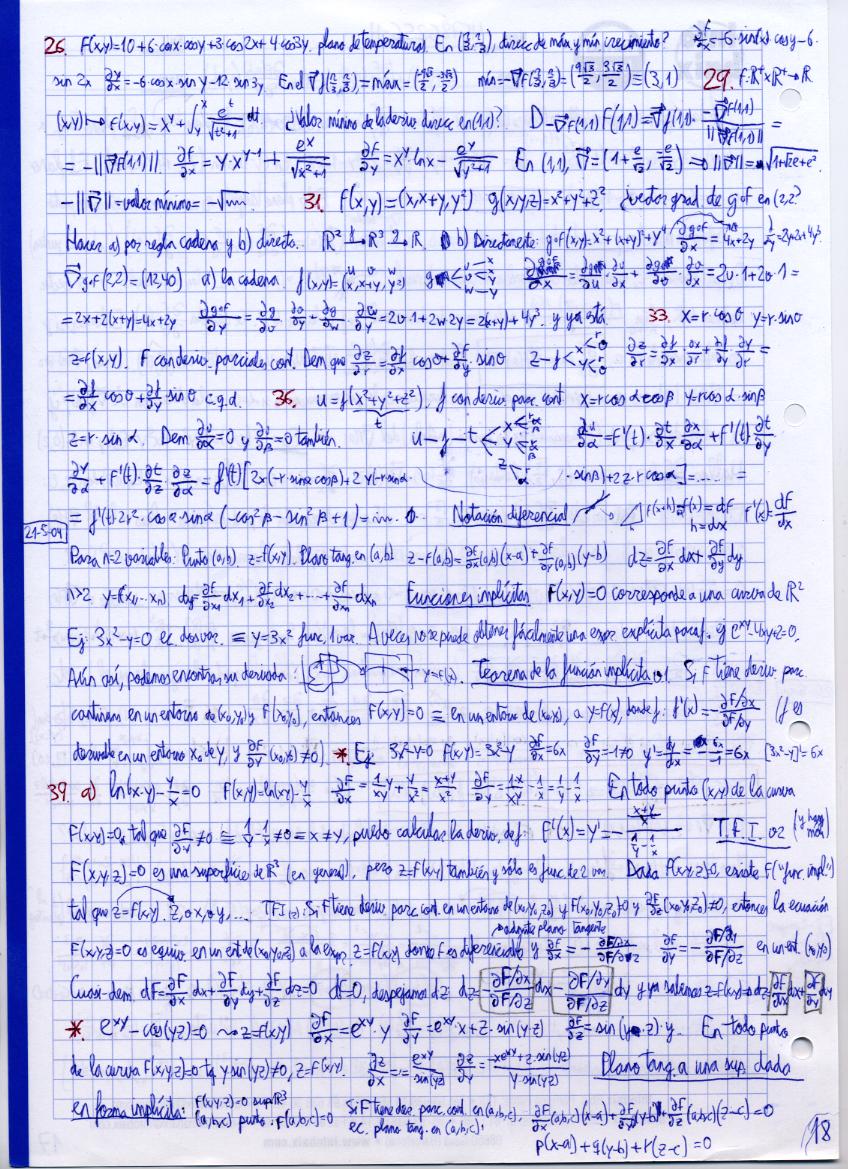 26. F(x,y)=10+6·cosx·cosy+3·cos2x+4cos3y. plano de temperaturas. En (π/3, π/3), direcc de máx y mín crecimiento? ∂F/∂x=-6·sin(x)·cosy-6·
sin 2x ∂F/∂y=-6·cosx·sin y-12·sin3y. En el ∇f(π/3,π/3)=máx= mín=-∇F(π/3,π/3)= ≡(3,1) 29. f:R⁺×R⁺→R
(x,y)↦f(x,y)=x^y+∫_y^x e^t/√(t²+1) dt. ¿Valor mínimo de la deriv direcc en (1,1)? D_-∇F(1,1) F(1,1)=∇f(1,1)· -∇f(1,1)/||∇f(1,1)|| =
=-||∇F(1,1)||. ∂F/∂x=y·x^(y-1)+e^x/√(x²+1) ∂F/∂y=x^y·lnx-e^y/√(y²+1) En (1,1), ∇=(1+e/√2, -e/√2) ⇒ ||∇||=√(1+√2e+e²)
-||∇||=valor mínimo=-√ 31. f(x,y)=(x,x+y,y²) g(x,y,z)=x²+y²+z². ¿vector grad. de g∘f en (2,2)?
Hacer a) por regla cadena y b) directo. R² →f R³ →g R b) Directamente: g∘f(x,y)=x²+(x+y)²+y⁴ ∂g∘f/∂x=4x+2y ∂/∂y=2y+2x+4y³
∇g∘f(2,2)=(12,40) a) la cadena. f(x,y)=(x,x+y,y²) u v w g u-x v-x y w-y ∂g∘f/∂x=∂g/∂u·∂u/∂x+∂g/∂v·∂v/∂x=2u·1+2v·1=
=2x+2(x+y)=4x+2y ∂g∘f/∂y=∂g/∂v·∂v/∂y+∂g/∂w·∂w/∂y=2v·1+2w2y=2(x+y)+4y³. y ya está. 33. x=r cosθ y=r·sinθ
z=f(x,y). F con deriv. parciales cont. Dem que ∂z/∂r=∂f/∂x cosθ+∂f/∂y·sinθ z-f x r θ y r θ ∂z/∂r=∂f/∂x·∂x/∂r+∂f/∂y·∂y/∂r=
=∂f/∂x cosθ+∂f/∂y sinθ c.q.d. 36. u=f(x²+y²+z²), f con deriv parc. cont x=rcosα cosβ y=rcosα·sinβ
z=r·sinα. Dem ∂u/∂α=0 y ∂u/∂β=0 también. u-f-t x y z r α β ∂u/∂α=f'(t)·∂t/∂x ∂x/∂α+f'(t)∂t/∂y·
∂y/∂α+f'(t)·∂t/∂z·∂z/∂α=f'(t)[2x(-r·sinα cosβ)+2y(-r sinα· ·sinβ)+2z·r cosα]=..... =
=f'(t)·2r²·cosα·sinα(-cos²β-sin²β+1)=...=0. Notación diferencial f(x+h)-f(x)=df h=dx f'(x)=df/dx
21-5-04
Para n=2 variables: Punto (a,b) z=f(x,y). Plano tang. en (a,b) z-F(a,b)=∂F/∂x(a,b)(x-a)+∂F/∂y(a,b)(y-b) dz=∂F/∂x dx+∂F/∂y dy
n>2 y=f(x₁...xₙ) dy=∂F/∂x₁ dx₁+∂F/∂x₂ dx₂+...+∂F/∂xₙ dxₙ Funciones implícitas F(x,y)=0 corresponde a una curva de R²
Ej: 3x²-y=0 ec. dos var. ≡ y=3x² func. 1 var. A veces no se puede obtener fácilmente una expr. explícita para f. ej e^xy-4xy+2=0.
Aún así, podemos encontrar su derivada: y=f(x). Teorema de la función implícita 01. Si F tiene deriv parc.
continuas en un entorno de (x₀,y₀) y F(x₀,y₀), entonces F(x,y)=0 ≡ en un entorno de (x₀,y₀), a y=f(x), donde f: f'(x)=-∂F/∂x / ∂F/∂y (f es
derivable en un entorno x₀ de y, y ∂F/∂y(x₀,y₀)≠0). * Ej: 3x²-y=0 F(x,y)=3x²-y ∂F/∂x=6x ∂F/∂y=-1≠0 y'=dy/dx=-6x/-1=6x [3x²-y]'=6x
39. a) ln(x·y)-y/x=0 F(x,y)=ln(xy)-y/x ∂F/∂x=1/xy·y+y/x²=x+y/x² ∂F/∂y=1·x/xy-1/x=1/y-1/x En todo punto (x,y) de la curva
F(x,y)=0, tal que ∂F/∂y≠0 ≡ 1/y-1/x≠0 ≡ x≠y, puedo calcular la deriv, def: F'(x)=y'=- T.F.I. 02 (y hay más)
F(x,y,z)=0 es una superficie de R³ (en general), pero z=f(x,y) también y sólo es func. de 2 var. Dada F(x,y,z)=0, existe F("func. impl")
tal que z=f(x,y). z, o x, o y,... TFI(2): Si F tiene deriv. parc. cont. en un entorno de (x₀,y₀,z₀) y F(x₀,y₀,z₀)=0 y ∂F/∂z(x₀,y₀,z₀)≠0, entonces la ecuación
admite plano tangente
F(x,y,z)=0 es equiv. en un ent de (x₀,y₀,z₀) a la expr. z=f(x,y), donde f es diferenciable y ∂f/∂x=-∂F/∂x / ∂F/∂z ∂f/∂y=-∂F/∂y / ∂F/∂z en un ent. (x₀,y₀)
Cuasi-dem. dF=∂F/∂x dx+∂F/∂y dy+∂F/∂z dz=0 dF=0, despejamos dz: dz=-∂F/∂x / ∂F/∂z dx-∂F/∂y / ∂F/∂z dy y ya sabemos z=f(x,y)⇒dz=∂F/∂x dx+∂F/∂y dy
* e^xy-cos(yz)=0 ~ z=f(x,y) ∂F/∂x=e^xy·y ∂F/∂y=e^xy·x+z·sin(y·z) ∂F/∂z=sin(y·z)·y. En todo punto
de la curva F(x,y,z)=0 tq y sin(yz)≠0, z=F(x,y). ∂z/∂x=-e^xy/sin(yz) ∂z/∂y=-xe^xy+z·sin(yz)/y·sin(yz) Plano tang. a una sup. dada
en forma implícita: F(x,y,z)=0 sup R³ (a,b,c) punto. F(a,b,c)=0 Si F tiene der. parc. cont. en (a,b,c), ec. plano tang. en (a,b,c): ∂F/∂x(a,b,c)(x-a)+∂F/∂y(y-b)+∂F/∂z(a,b,c)(z-c)=0
p(x-a)+q(y-b)+r(z-c)=0
18